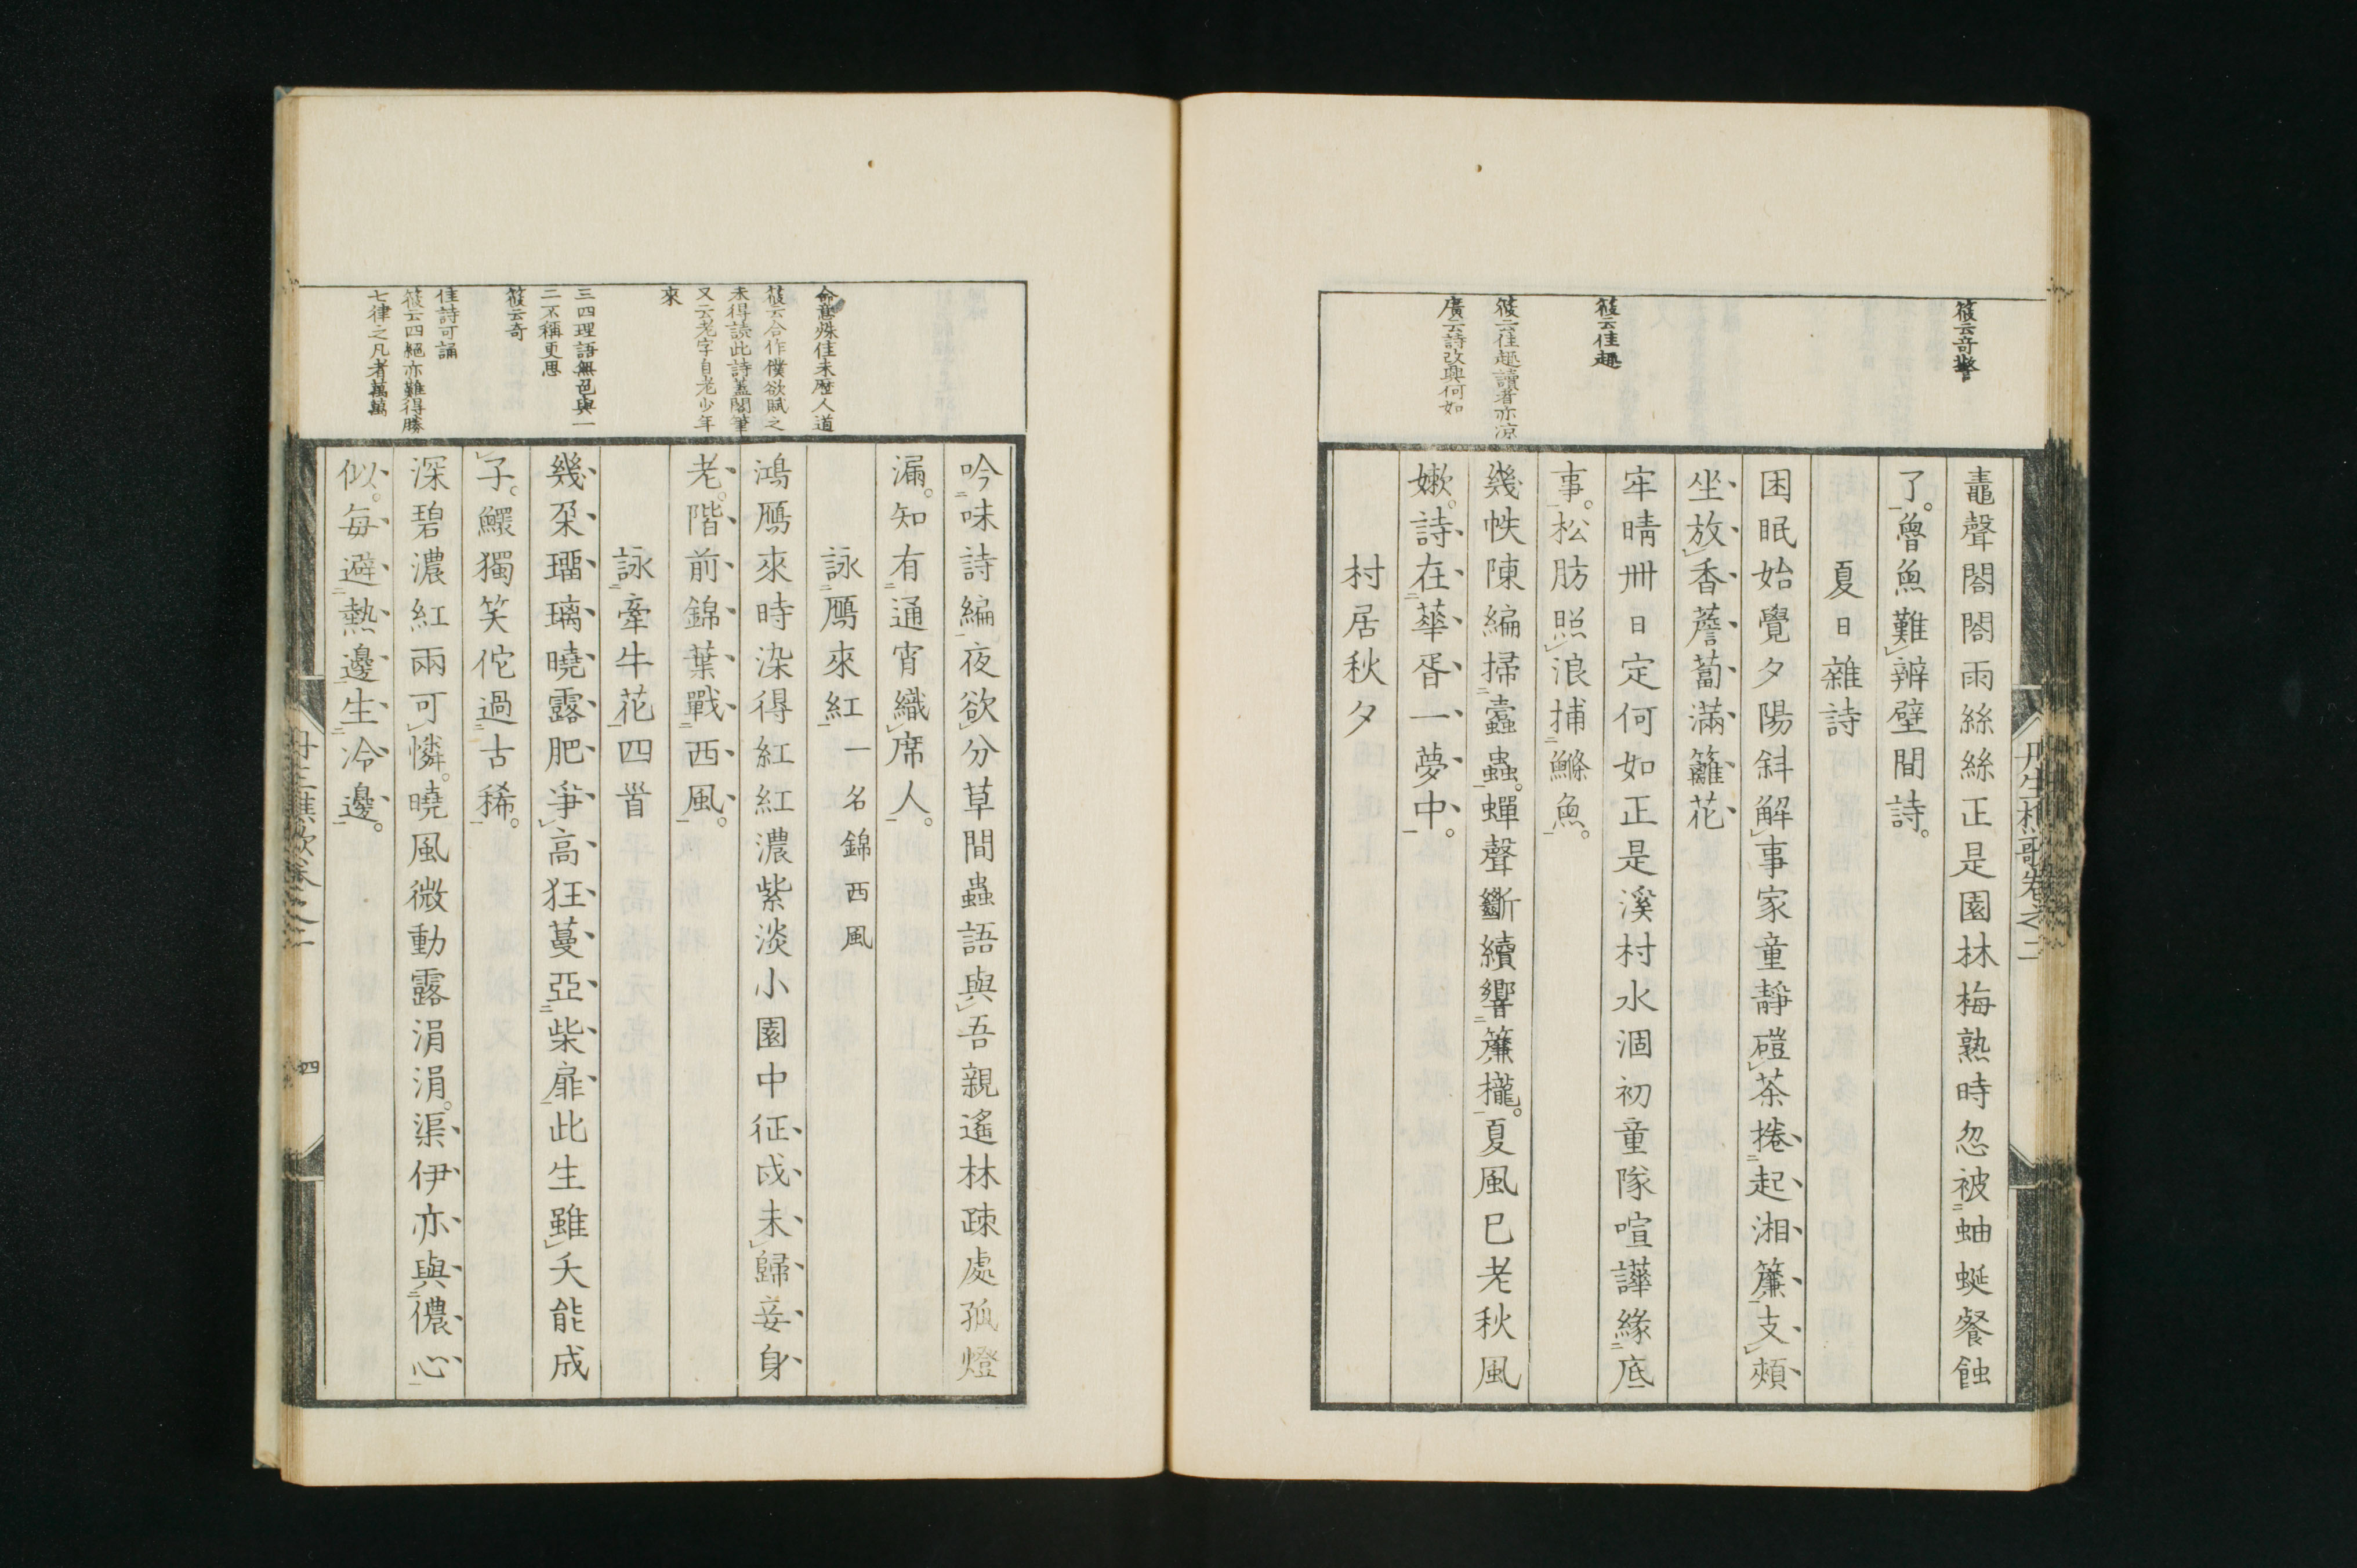 筱云奇警
筱云佳趣
筱云佳趣讀者亦凉
廣云詩改興何如
鼃聲閤閤雨絲絲正是園林梅熟時忽被蚰蜒餐蝕
了魯魚難辨壁間詩
夏日雜詩
困眠始覺夕陽斜解事家童靜磑茶捲起湘簾支頰
坐放香薝蔔滿籬花
牢晴卌日定何如正是溪村水涸初童隊喧譁緣底
事松肪照浪捕鰷魚
幾帙陳編掃蠹蟲蟬聲斷續響簾櫳夏風已老秋風
嫩詩在華胥一夢中
村居秋夕
丹生樵歌卷之二
命意殊佳未歷人道
筱云合作僕欲賦之
未得読此詩蓋閣筆
又云老字自老少年
來
三四理語無色與一
二不稱更思
筱云奇
佳詩可誦
筱云四絕亦難得勝
七律之凡者萬萬
吟味詩編夜欲分草間蟲語與吾親遙林疎處孤燈
漏知有通宵織席人
詠鴈來紅一名錦西風
鴻鴈來時染得紅紅濃紫淡小園中征戍未歸妾身
老階前錦葉戰西風
詠牽牛花四首
幾朶瑠璃曉露肥爭高狂蔓亞柴扉此生雖夭能成
子鰥獨笑佗過古稀
深碧濃紅兩可憐曉風微動露涓涓渠伊亦與儂心
似每避熱邊生冷邊
丹生樵歌卷之二
四